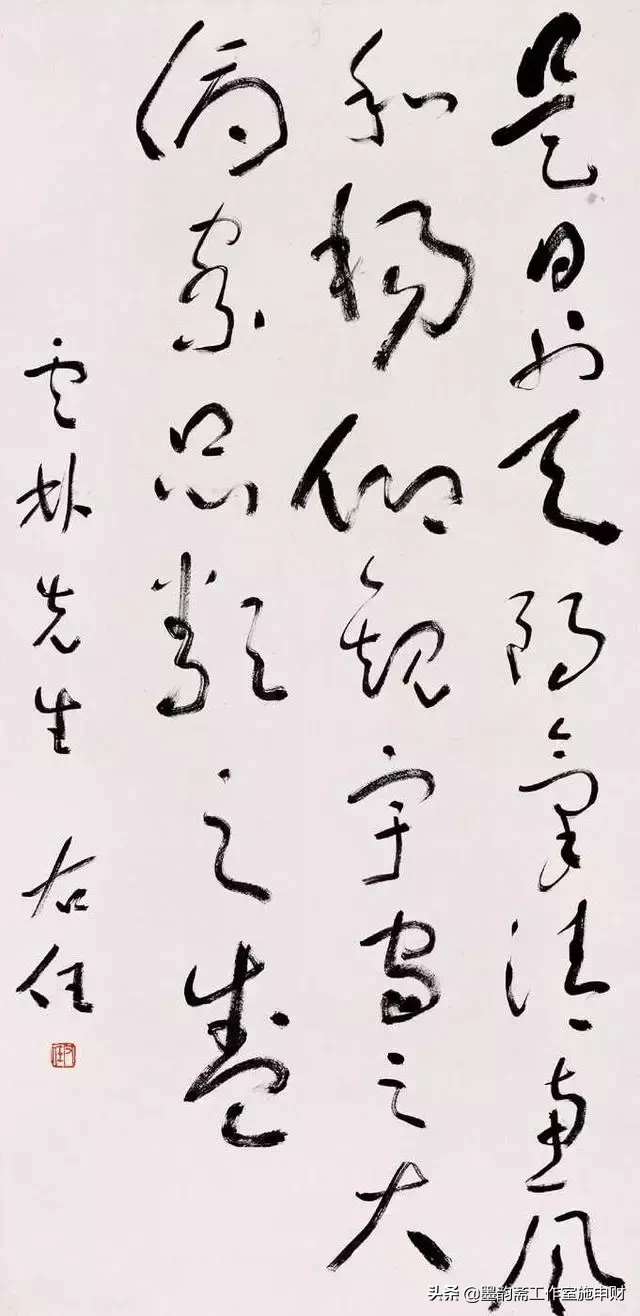 是日也天朗氣清惠風
和暢仰觀宇宙之大
俯察品類之盛
雲林先生 右任
右任
头条 @墨韵斋工作室施申财